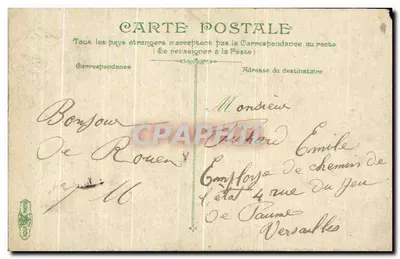 CARTE POSTALE
Tous les pays étrangers n'acceptent pas la Correspondance au recto
(Se renseigner à la Poste)
Correspondance
Adresse du destinataire
Bonjour
de Rouen
M
Monsieur
Emile
Employe de chemin de
l'état 4 rue du Jeu
de Paume
Versailles
CPARAMA